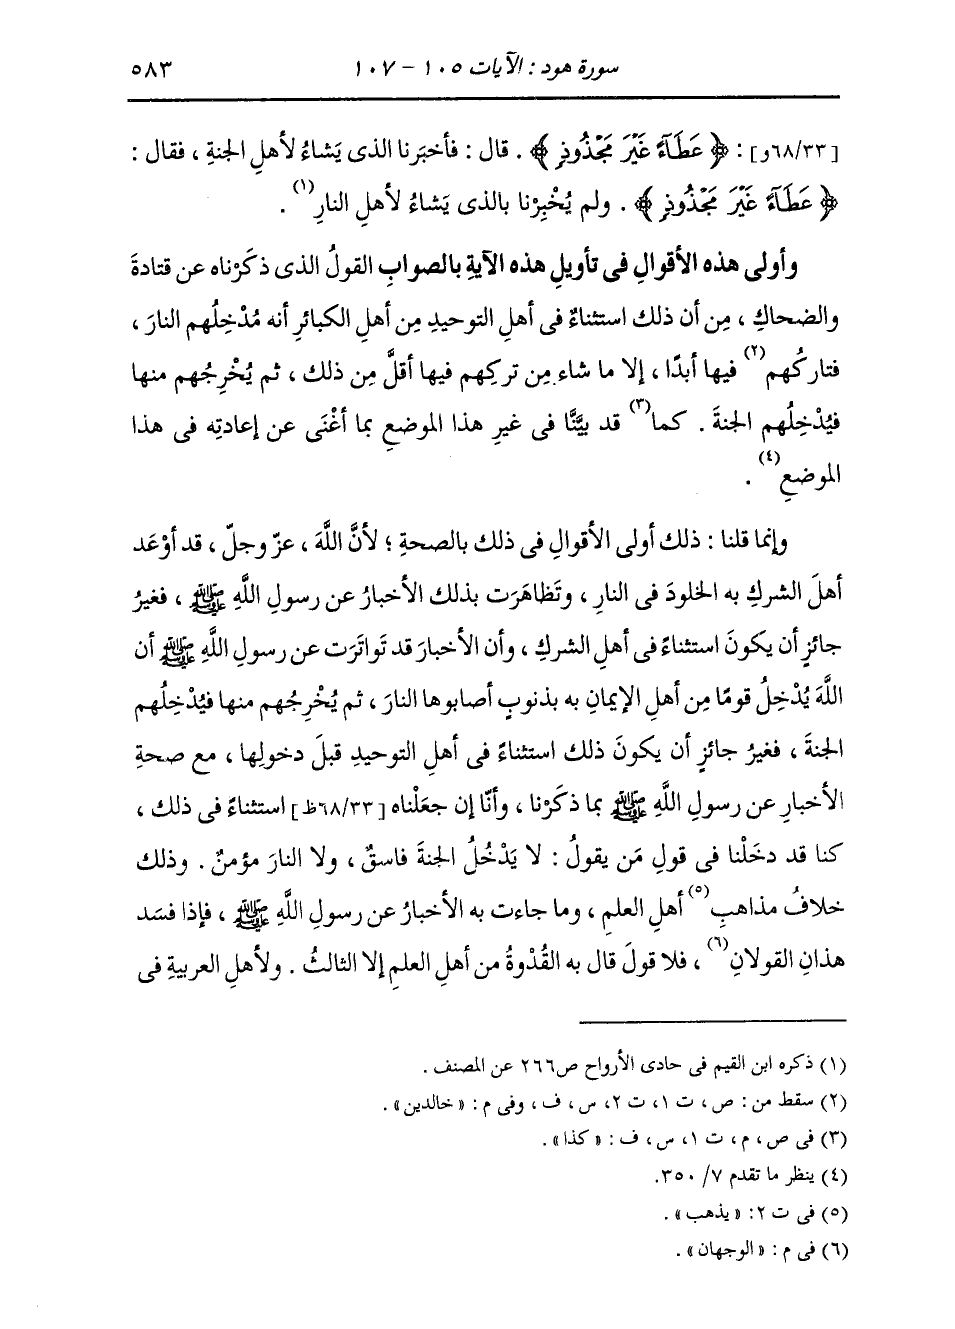 سورة هود : الآيات ١٠٥ - ١٠٧ ٥٨٣
[٦٨/٣٣و] : ﴿ عَطَآءً غَيْرَ مَجْذُوذٍ ﴾ . قال : فأخبَرنا الذى يَشاءُ لأهلِ الجنةِ ، فقال :
﴿ عَطَآءً غَيْرَ مَجْذُوذٍ ﴾ . ولم يُخْبِرْنا بالذى يَشاءُ لأهلِ النارِ(١) .
وأولى هذه الأقوالِ فى تأويلِ هذه الآيةِ بالصوابِ القولُ الذى ذكَرْناه عن قتادةَ
والضحاكِ ، مِن أن ذلك استثناءٌ فى أهلِ التوحيدِ مِن أهلِ الكبائرِ أنه مُدْخِلُهم النارَ ،
فتاركُهم(٢) فيها أبدًا ، إلا ما شاء مِن تركِهم فيها أقلَّ مِن ذلك ، ثم يُخْرِجُهم منها
فيُدْخِلُهم الجنةَ . كما(٣) قد بيَّنَّا فى غيرِ هذا الموضعِ بما أغْنَى عن إعادتِه فى هذا
الموضعِ(٤) .
وإنما قلنا : ذلك أولى الأقوالِ فى ذلك بالصحةِ ؛ لأنَّ اللَّهَ ، عزّ وجلّ ، قد أوْعَد
أهلَ الشركِ به الخلودَ فى النارِ ، وتَظاهَرَت بذلك الأخبارُ عن رسولِ اللَّهِ ﷺ ، فغيرُ
جائزٍ أن يكونَ استثناءً فى أهلِ الشركِ ، وأن الأخبارَ قد تَواتَرَت عن رسولِ اللَّهِ ﷺ أن
اللَّهَ يُدْخِلُ قومًا مِن أهلِ الإيمانِ به بذنوبٍ أصابوها النارَ ، ثم يُخْرِجُهم منها فيُدْخِلُهم
الجنةَ ، فغيرُ جائزٍ أن يكونَ ذلك استثناءً فى أهلِ التوحيدِ قبلَ دخولِها ، مع صحةِ
الأخبارِ عن رسولِ اللَّهِ ﷺ بما ذكَرْنا ، وأنّا إن جعَلْناه [٦٨/٣٣ظ] استثناءً فى ذلك ،
كنا قد دخَلْنا فى قولِ مَن يقولُ : لا يَدْخُلُ الجنةَ فاسقٌ ، ولا النارَ مؤمنٌ . وذلك
خلافُ مذاهبِ(٥) أهلِ العلمِ ، وما جاءت به الأخبارُ عن رسولِ اللَّهِ ﷺ ، فإذا فسَد
هذانِ القولانِ(٦) ، فلا قولَ قال به القُدْوةُ من أهلِ العلمِ إلا الثالثُ . ولأهلِ العربيةِ فى
(١) ذكره ابن القيم فى حادى الأرواح ص٢٦٦ عن المصنف .
(٢) سقط من : ص ، ت ١، ت ٢، س ، ف ، وفى م : « خالدين» .
(٣) فى ص ، م ، ت ١، س ، ف : « كذا» .
(٤) ينظر ما تقدم ٧/ ٣٥٠.
(٥) فى ت ٢: « يذهب» .
(٦) فى م : « الوجهان» .